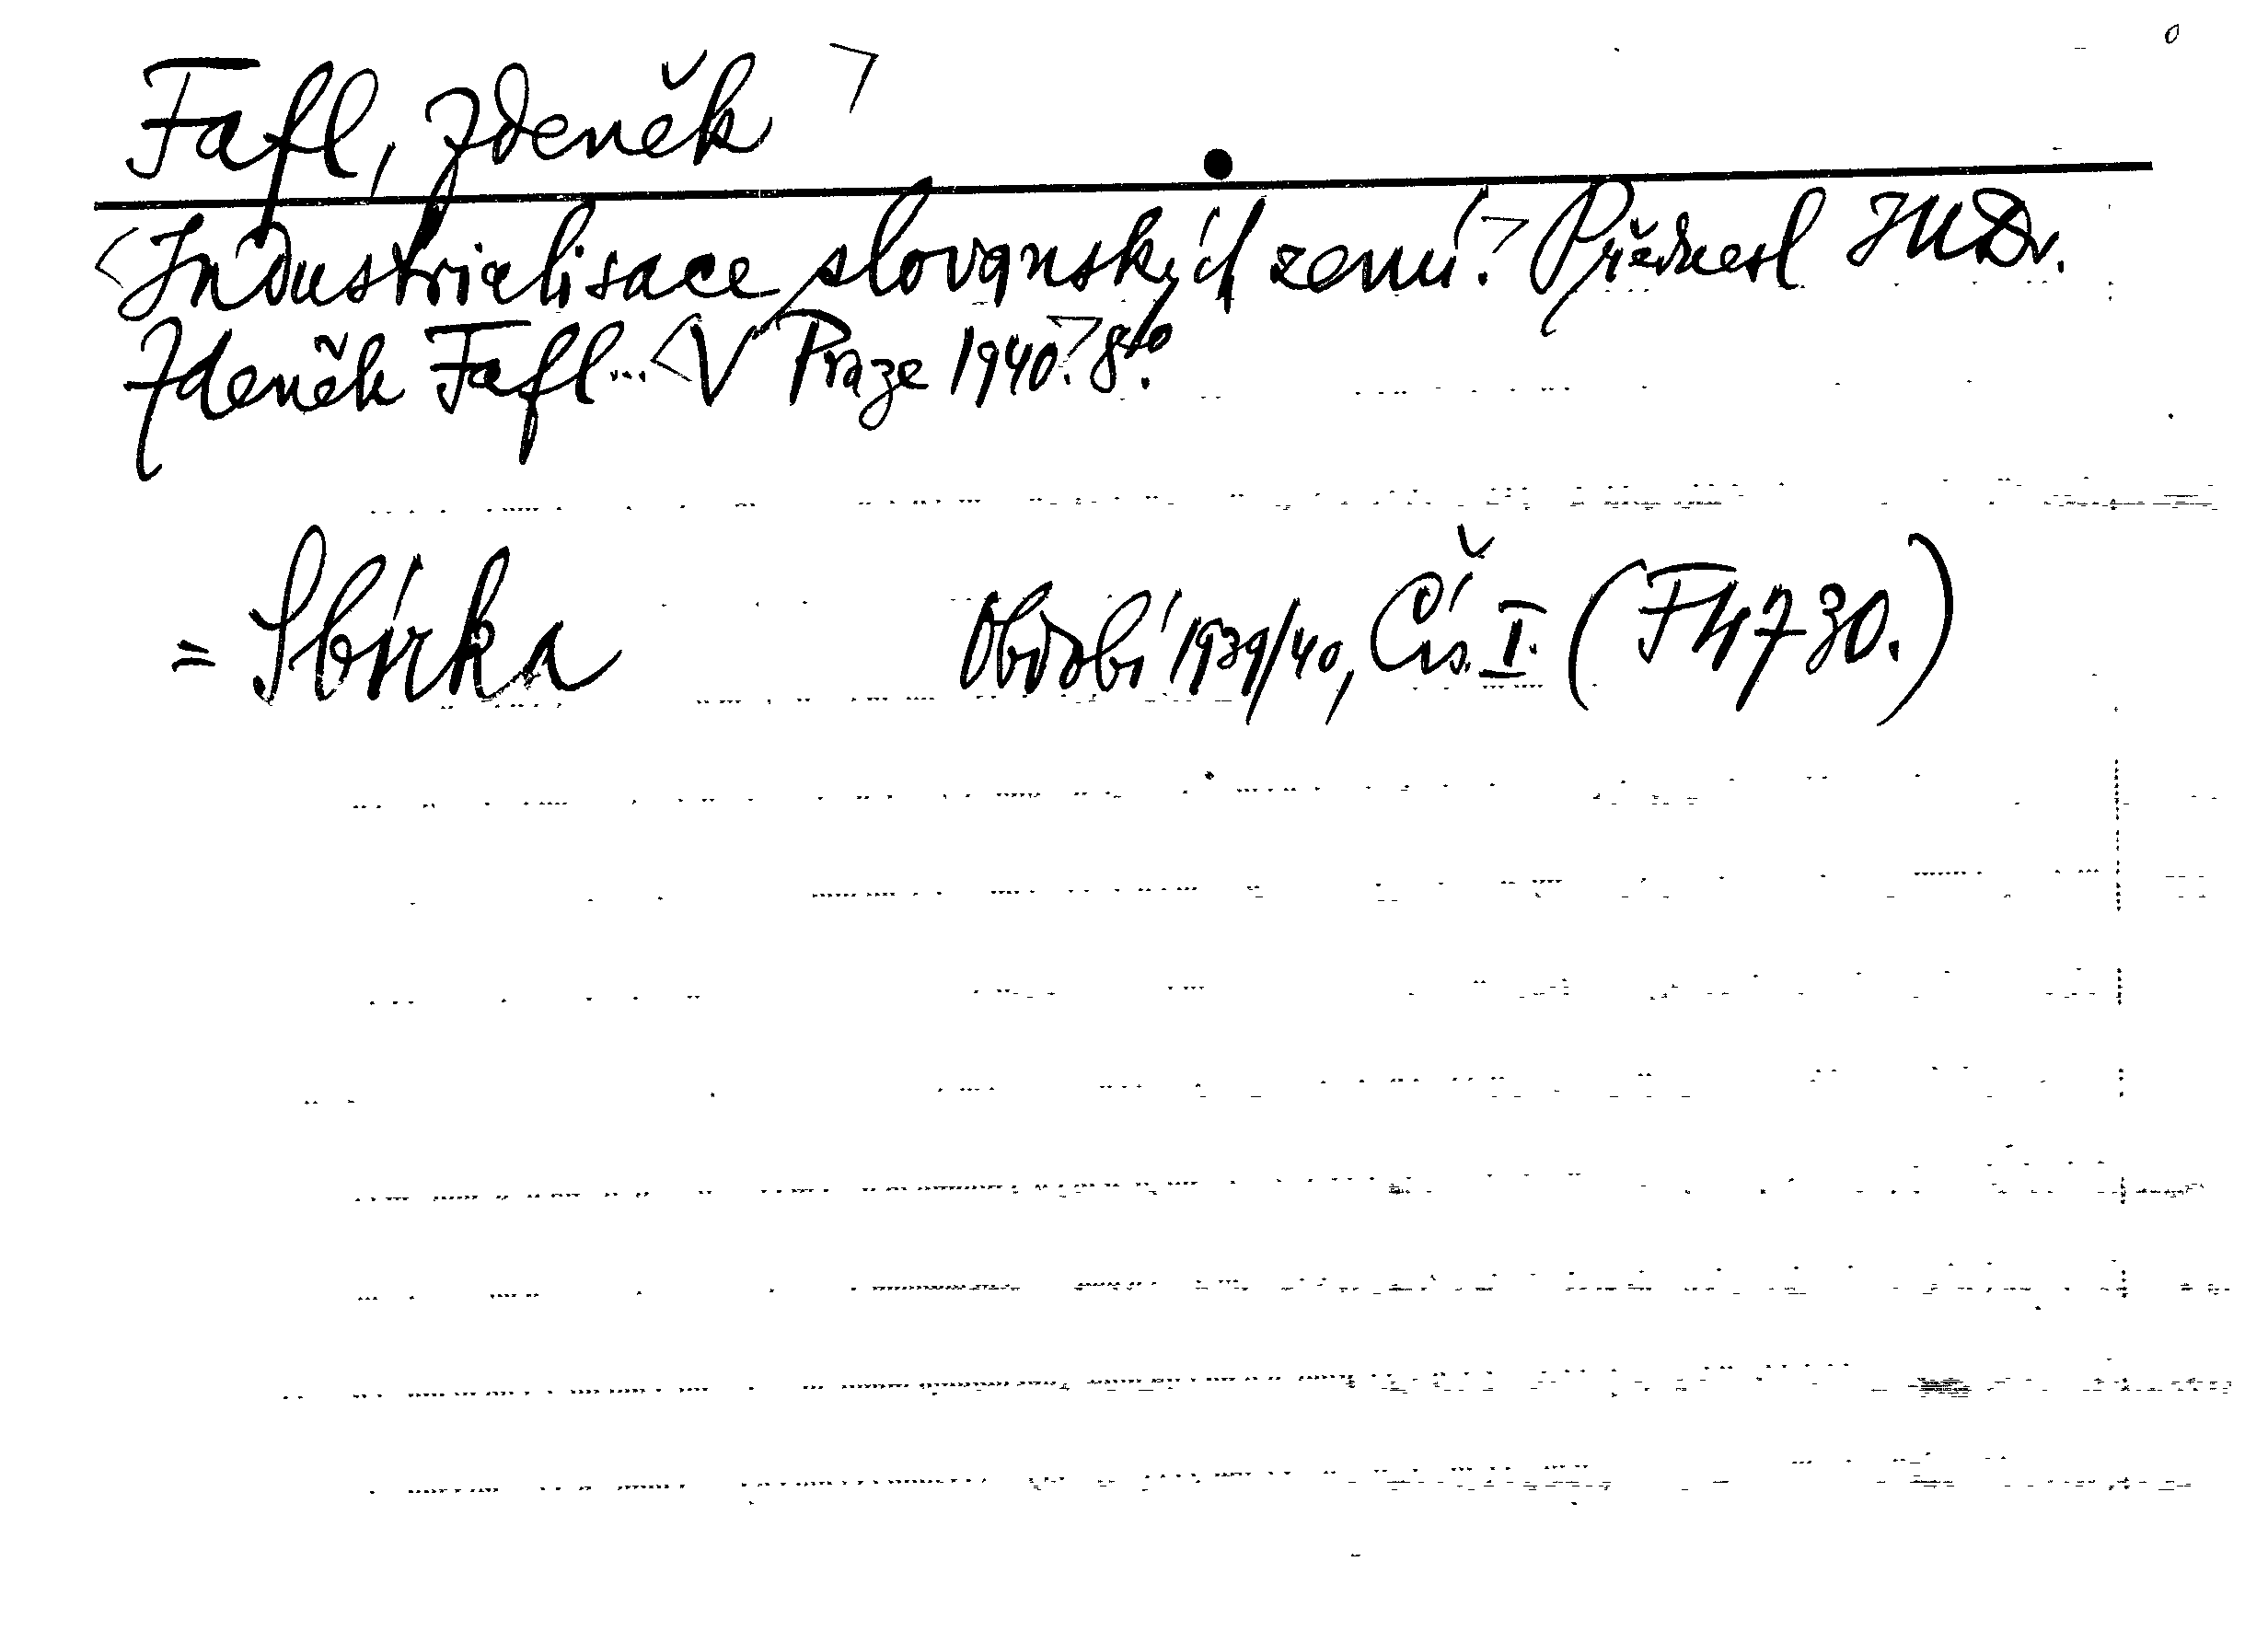 Fafl, Zdeněk ¬
<Industrialisace slovanských zemí.¬ Přednesl JUDr.
Zdeněk Fafl... <V Praze 1940.¬ 8to.
= Sbírka Období 1939/40, Čís. I. (F 4730.)